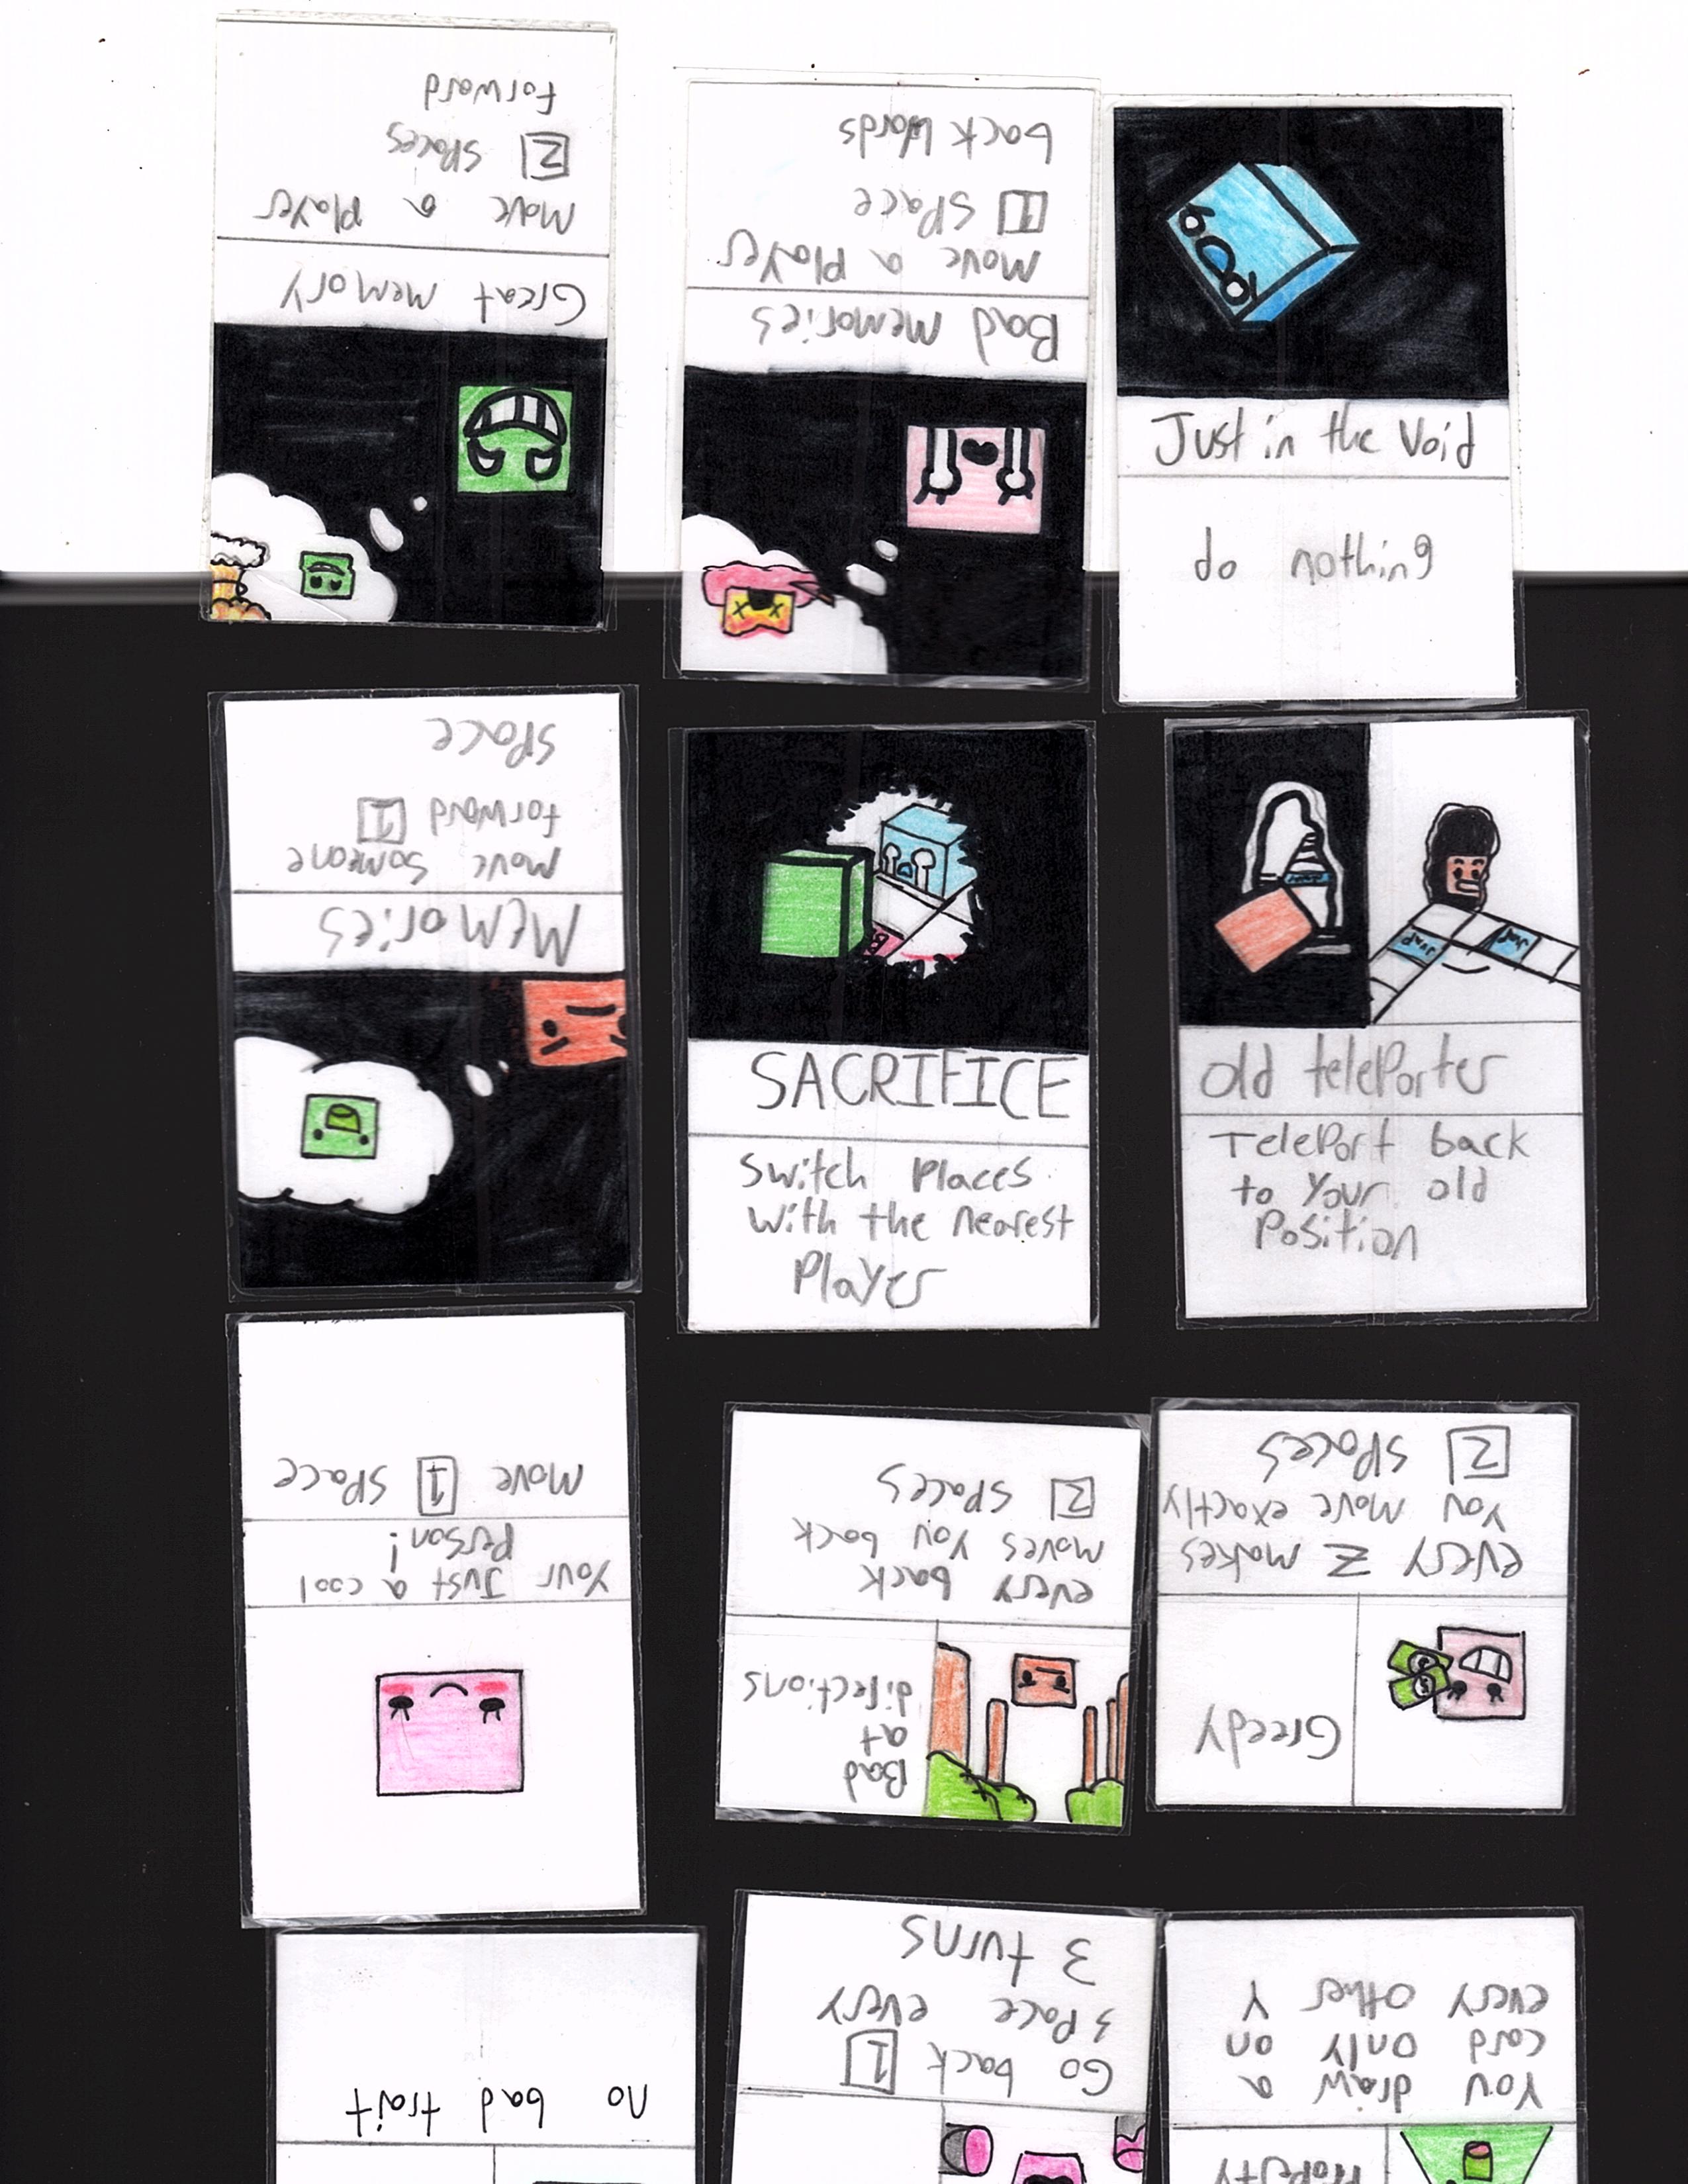 Great memory
Move a Player
2 spaces
forward
Bad memories
Move a Player
1 space
back wards
Just in the Void
do nothing
Memories
Move someone
forward 1
space
SACRIFICE
Switch Places
with the nearest
Player
JUMP
JUMP
old telePorter
TelePort back
to your old
Position
Your Just a cool
Person!
Move 1 space
Bad
at
directions
every back
moves you back
2 spaces
Greedy
every 2 makes
you move exactly
2 spaces
no bad trait
Go back 1
space every
3 turns
Property
You draw a
card only on
every other Y